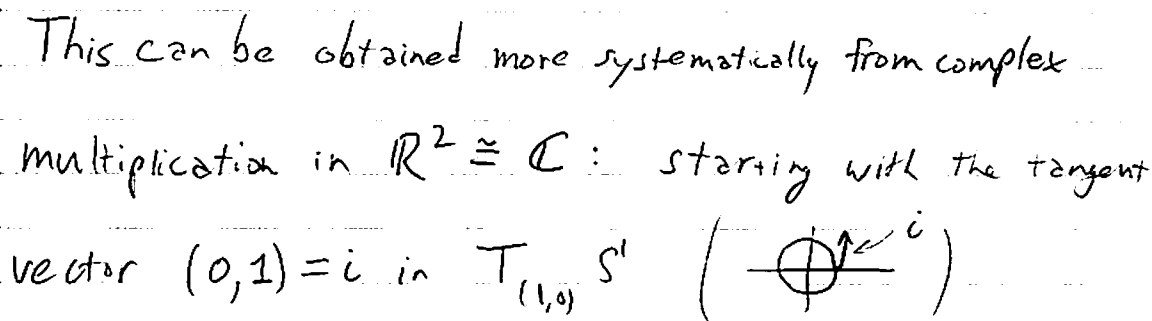 This can be obtained more systematically from complex
multiplication in ℝ² ≅ ℂ : starting with the tangent
vector (0,1) = i in T₍₁,₀₎ S¹ ( i )